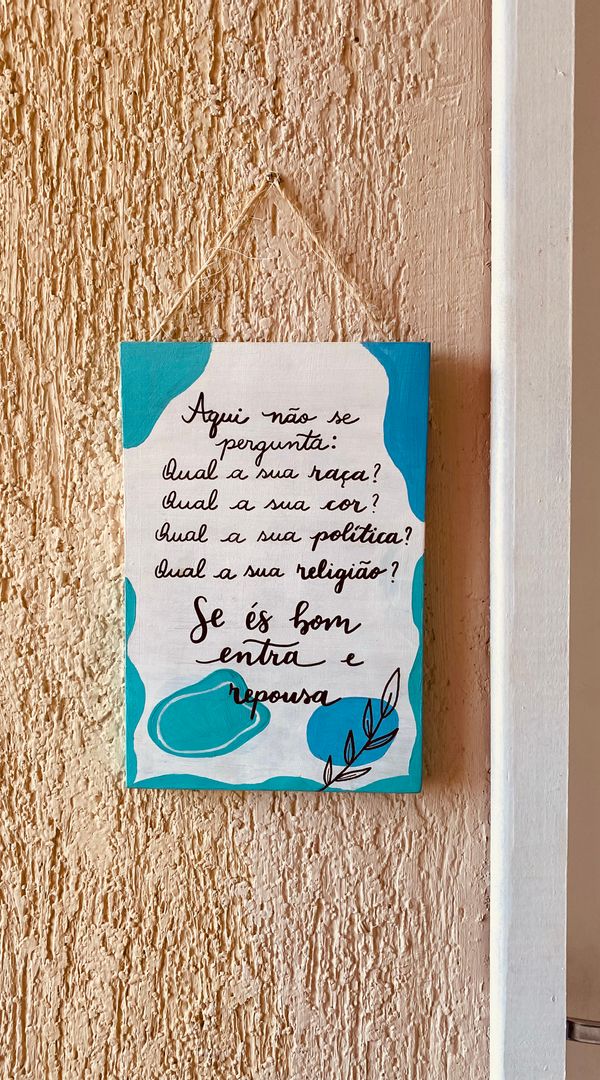 Aqui não se
pergunta:
Qual a sua raça?
Qual a sua cor?
Qual a sua política?
Qual a sua religião?
Se és bom
entra e
repousa